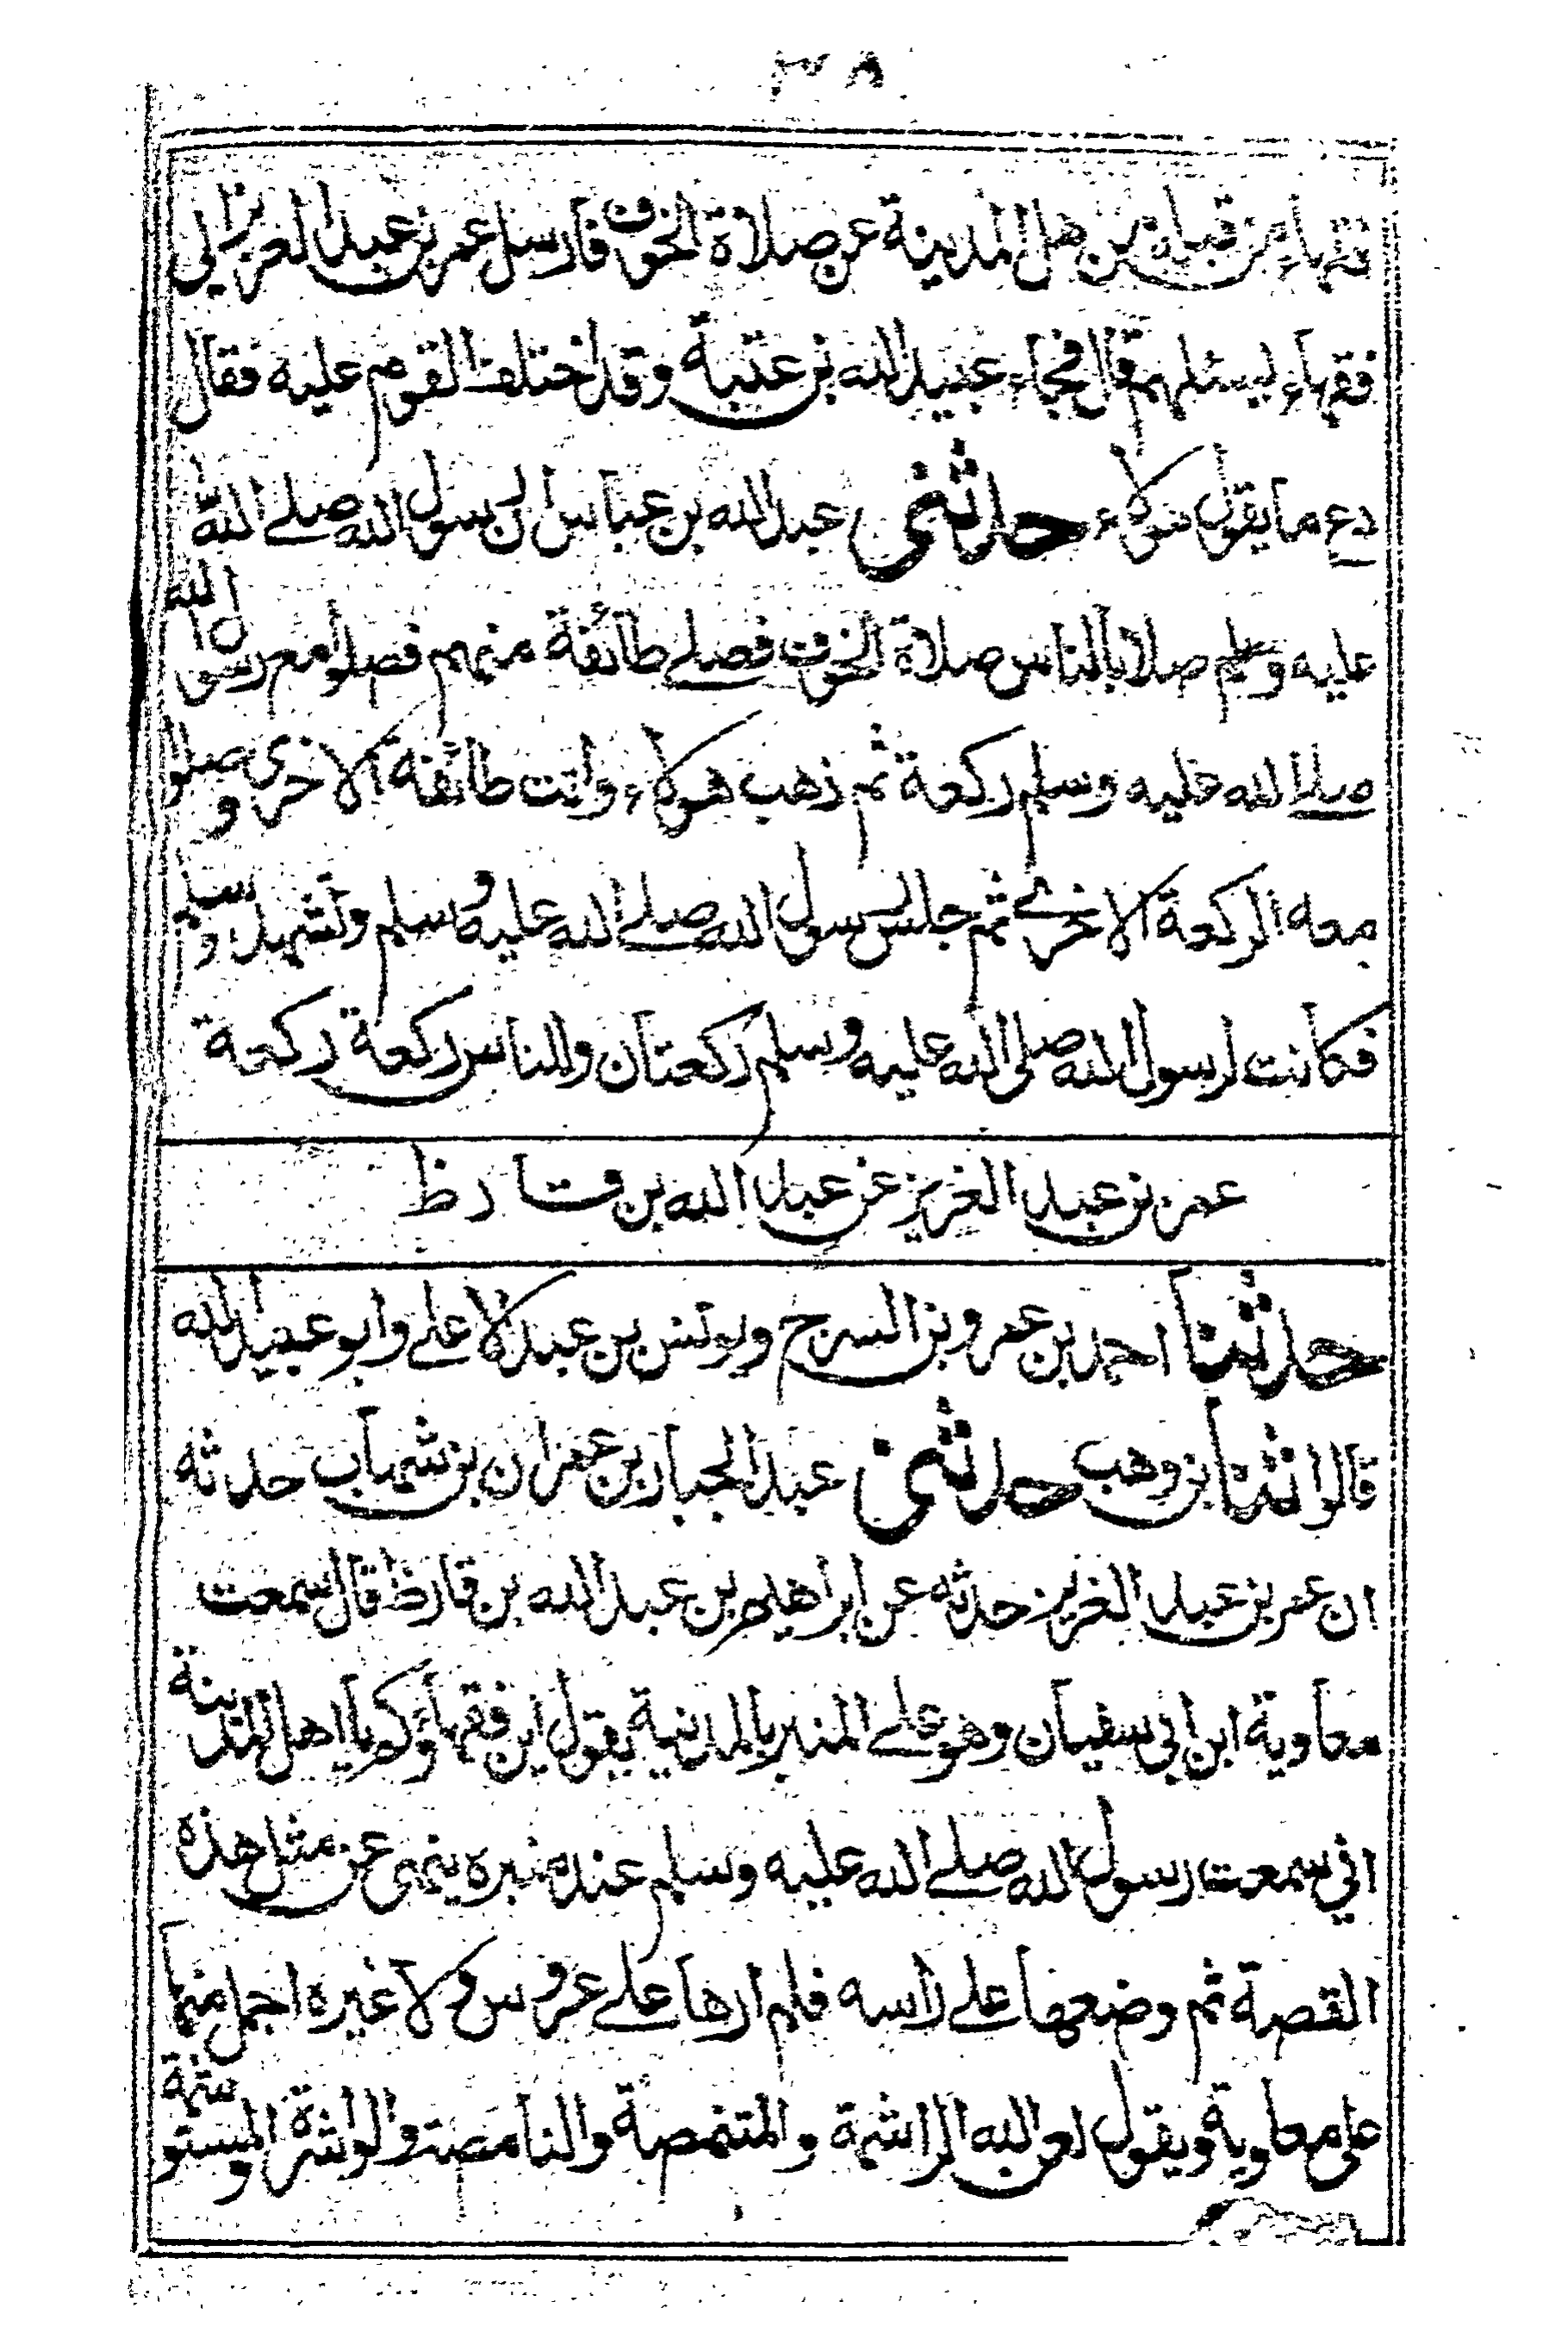 ٣٨
فقهاء من قبله من هل المدينة عن صلاة الخوف فارسل عمر بن عبد العزيز الي
فقهاء ليسئلهم قال فجاء عبيد الله بن عتبة وقد اختلف القوم عليه فقال
دع ما يقول هولاء حدثني عبد الله بن عباس ان رسول الله صلے الله
عليه وسلم صلا بالناس صلاة الخوف فصلے طائفة منهم فصلوا مع رسول الله
صلا الله عليه وسلم ركعة ثم ذهب هولاء واتت طائفة الاخرى وصلوا
معه الركعة الاخرے ثم جلس رسول الله صلے الله عليه وسلم وتشهد وسلم
فكانت لرسول الله صلى الله عليه وسلم ركعتان وللناس ركعة ركعة
عمر بن عبد العزيز عن عبد الله بن قارظ
حدثنا احمد بن عمرو بن السرح ويونس بن عبد الاعلے وابو عبيد الله
قالوا ثنا بن وهب حدثني عبد الجبار بن عمر ان بن شهاب حدثه
ان عمر بن عبد العزيز حدثه عن ابراهيم بن عبد الله بن قارظ قال سمعت
معاوية ابن ابي سفيان وهو علے المنبر بالمدينة يقول اين فقهاؤكم يا اهل المدينة
اني سمعت رسول الله صلے الله عليه وسلم عند منبره ينهى عن مثل هذه
القصة ثم وضعها علے راسه فلم ارها علے عروس ولا غيره اجمل منها
على معاوية ويقول لعن الله الراشمة والمتنمصة والنامصة والواشرة والمستوشمة